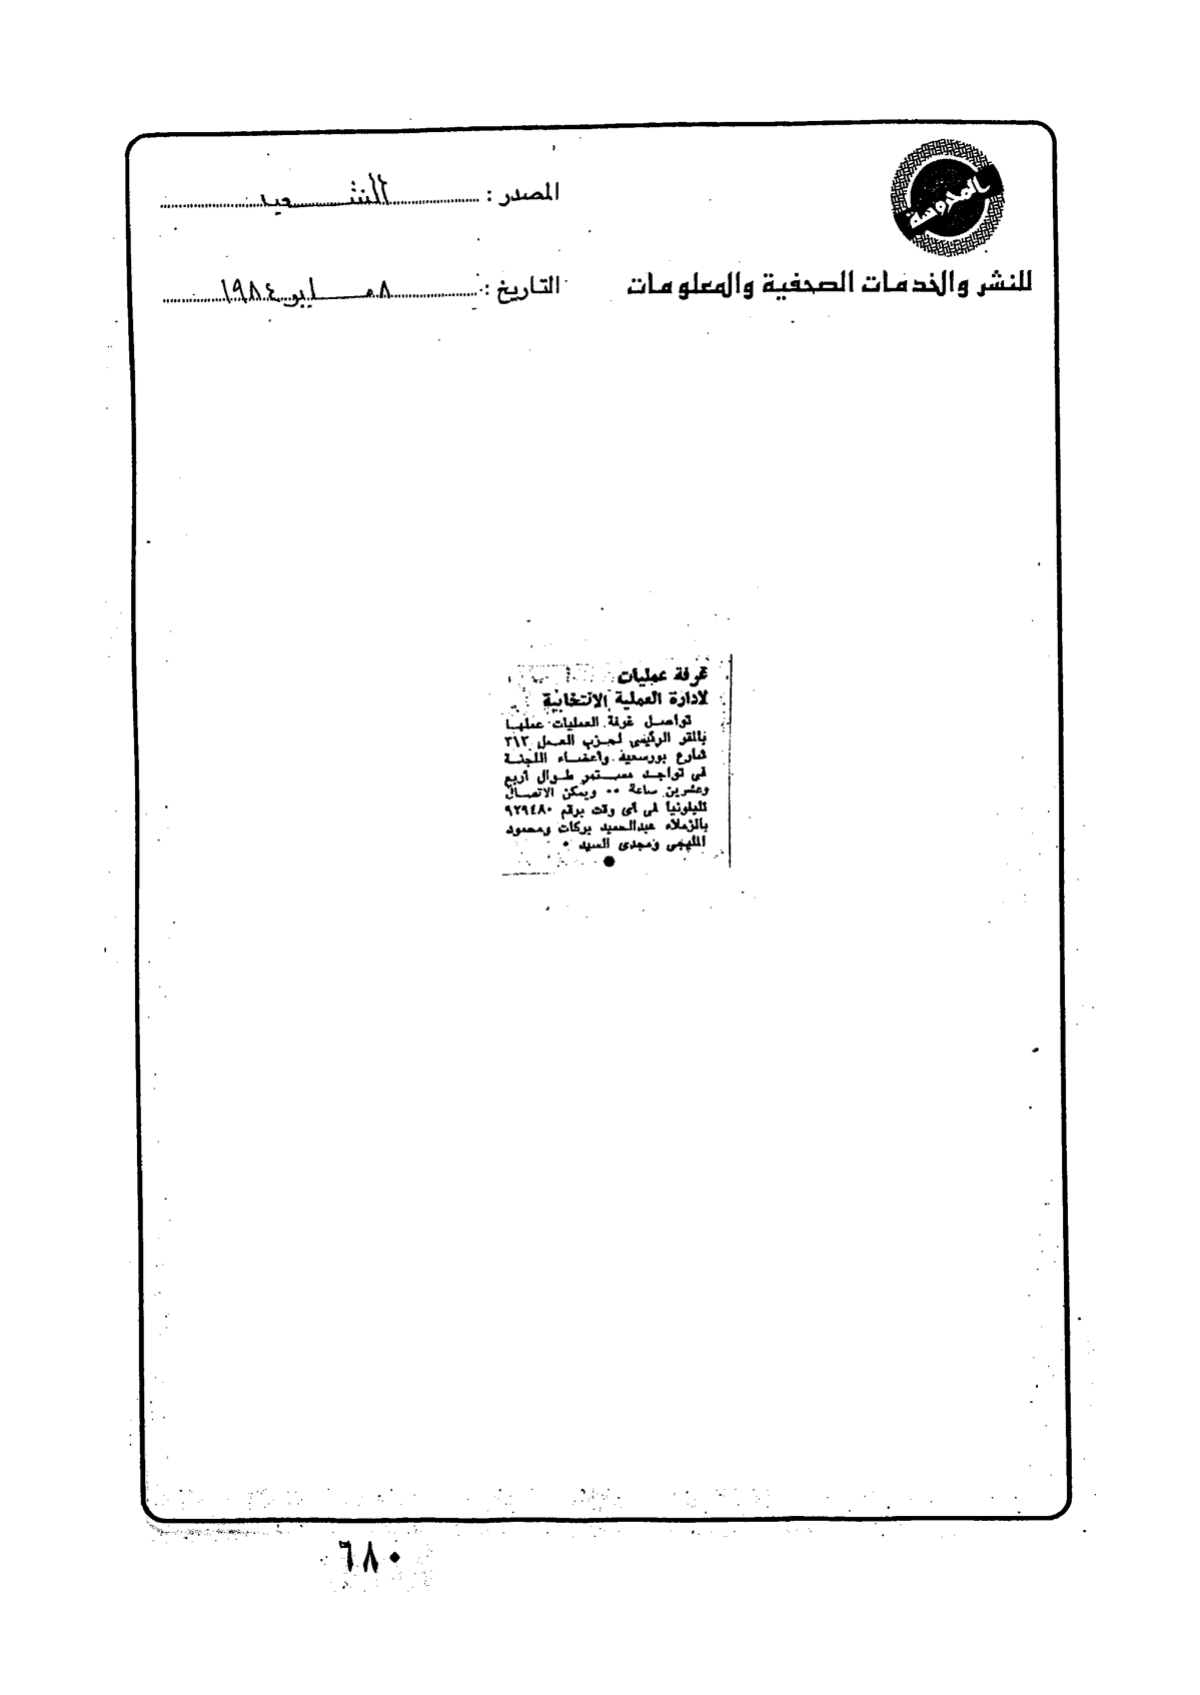 المحروسة
للنشر والخدمات الصحفية والمعلومات
المصدر : الشعب
التاريخ : ٨ مايو ١٩٨٤
غرفة عمليات
لادارة العملية الانتخابية
تواصل غرفة العمليات عملها
بالمقر الرئيسى لحزب العمل ٣١٣
شارع بورسعيد واعضاء اللجنة
فى تواجد مستمر طوال أربع
وعشرين ساعة ٠٠ ويمكن الاتصال
تليفونيا فى أى وقت برقم ٩٢٩٤٨٠
بالزملاء عبدالحميد بركات ومحمود
المليجى ومجدى السيد ٠
٦٨٠